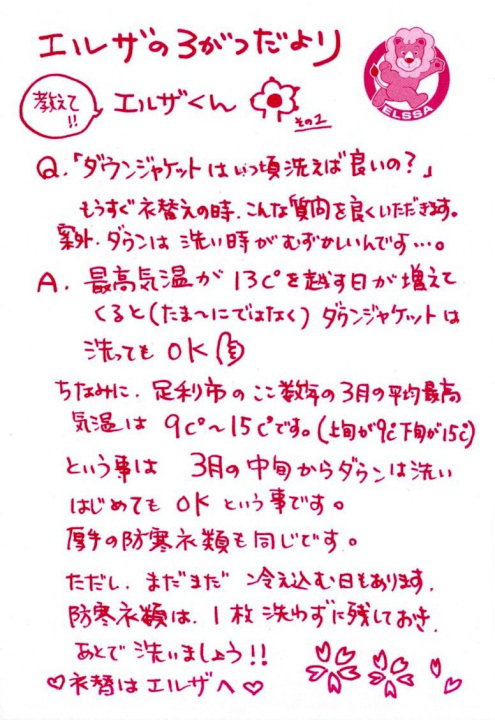 エルザの3がつだより
ELSSA
教えて!!
エルザくん
その1
Q.「ダウンジャケットはいつ頃洗えば良いの?」
もうすぐ衣替えの時、こんな質問を良くいただきます。
案外、ダウンは洗い時がむずかしいんです…。
A. 最高気温が13℃を越す日が増えて
くると(たま〜にではなく)ダウンジャケットは
洗ってもOK
ちなみに、足利市のここ数年の3月の平均最高
気温は9℃〜15℃です。(上旬が9℃下旬が15℃)
という事は 3月の中旬からダウンは洗い
はじめてもOKという事です。
厚手の防寒衣類も同じです。
ただし、まだまだ 冷え込む日もあります。
防寒衣類は、1枚洗わずに残しておき、
あとで洗いましょう!!
♡衣替はエルザへ♡